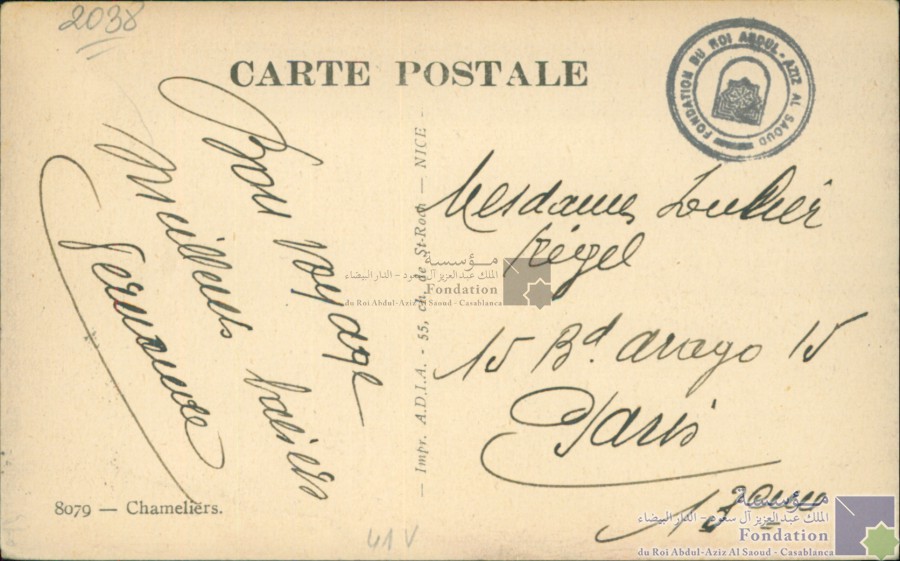 2038
CARTE POSTALE
FONDATION DU ROI ABDUL-AZIZ AL SAOUD
Bon voyage
Meilleurs baisers
Germaine
Impr. A.D.I.A. - 55, ch. de St-Roch — NICE -
Mesdames
Siégel
15 Bd arago 15
Paris
13eme
8079 — Chameliers.
41 V
مؤسسة
الملك عبد العزيز آل سعود - الدار البيضاء
Fondation
du Roi Abdul-Aziz Al Saoud - Casablanca
مؤسسة
الملك عبد العزيز آل سعود - الدار البيضاء
Fondation
du Roi Abdul-Aziz Al Saoud - Casablanca